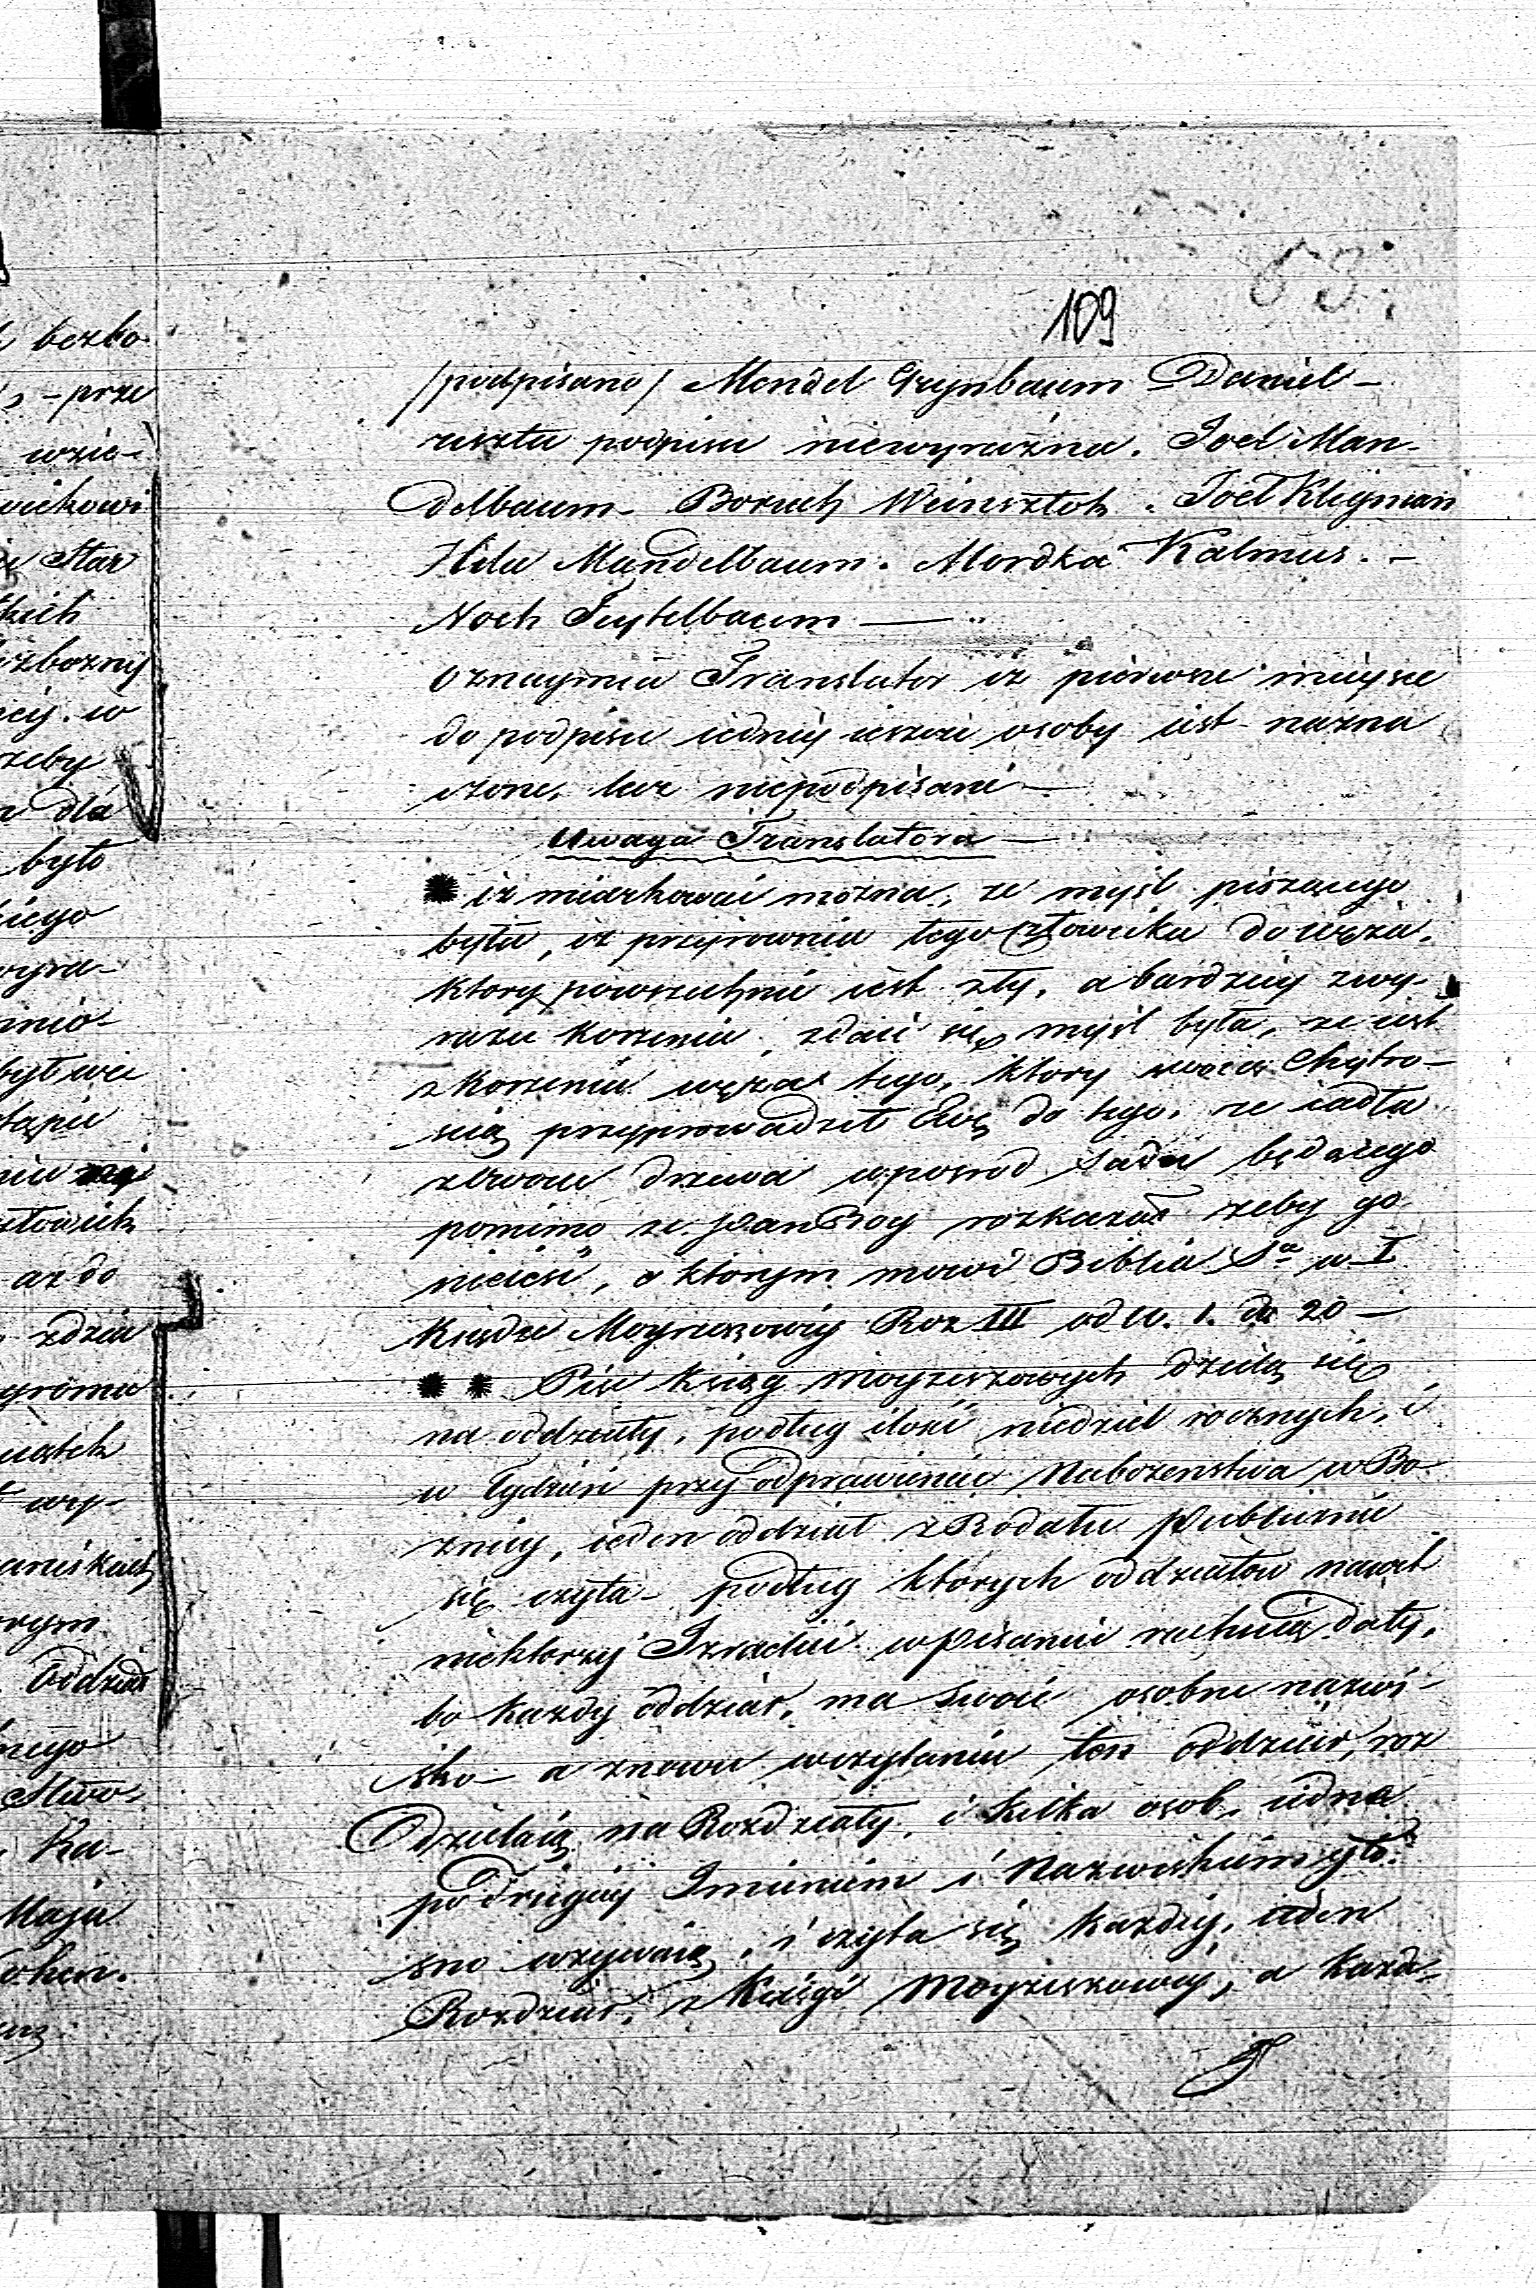 63.
109
/podpisano/ Mendel Grynbaum Daniel –
reszta podpisu niewyraźna. Joel Man-
delbaum – Boruch Weinsztok. Joel Kleyman
Hila Mandelbaum. Mordka Kalmus. –
Noch Teytelbaum —
oznaymia Translator iz pierwsze mieysce
do podpisu iedney ieszcze osoby iest nazna
czone, lecz niepodpisane —
Uwaga Translatora —
* iz miarkować mozna, ze myśl piszącego
była, iz przyrownia tego człowieka do węza,
ktory powszechnie iest zły, a bardziey z wy-
razu korzenia, zdaie się myśl była, ze iest
z korzenia węza tego, ktory swoią chytro-
scią przyprowadził Ewę do tego, ze iadła
z drzewa wposrod sadu będącego
pomimo ze Pan Bog rozkazał zeby go
nieieść, o ktorym mowi Biblia Sa w I
Xiędze Moyzeszowey Roz III od W. 1. do 20 –
* * Pięć Xsiąg Moyzeszowych dzielą się
na oddziały, podług ilości niedziel rocznych, i
w Tydzień przy odprawieniu Nabozenstwa w Bo-
znicy, ieden oddział z Rodału publicznie
się czyta – podług ktorych oddziałow nawet
niektorzy Izraelici w pisaniu rachuią daty,
bo kazdy oddział, ma swoie osobne nazwi-
sko – a znowu wczytaniu ten oddział, roz
dzielaią na Rozdziały, i kilka osob, iedna
po drugiey Imieniem i Nazwiskiem gło-
sno wzywaią, i czyta się kazdey, ieden
Rozdział, z Xięgi Moyzeszowey, a kazda
bezbo-
– prze
wzie-
Star
bezbozny
w
zeby
dla
było
az do
wy-
oddział
Stwo-
Ka-
Maja